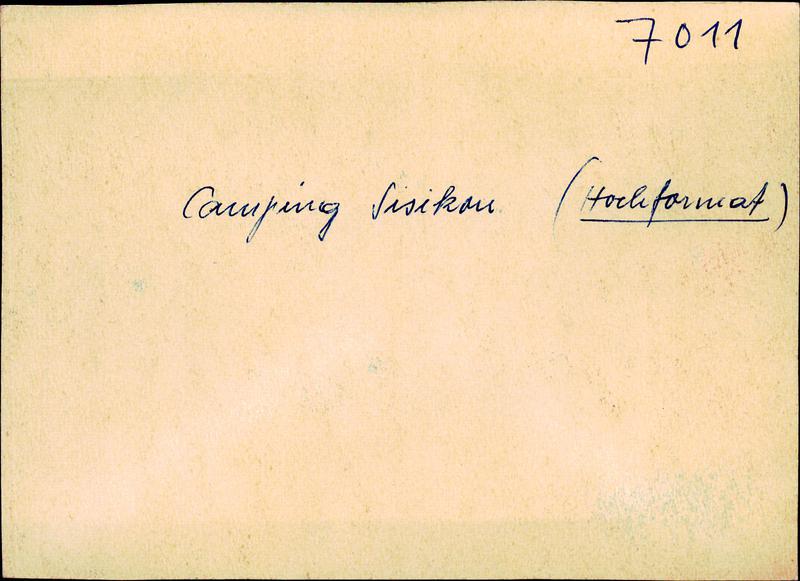 7011
Camping Sisikon (Hochformat)